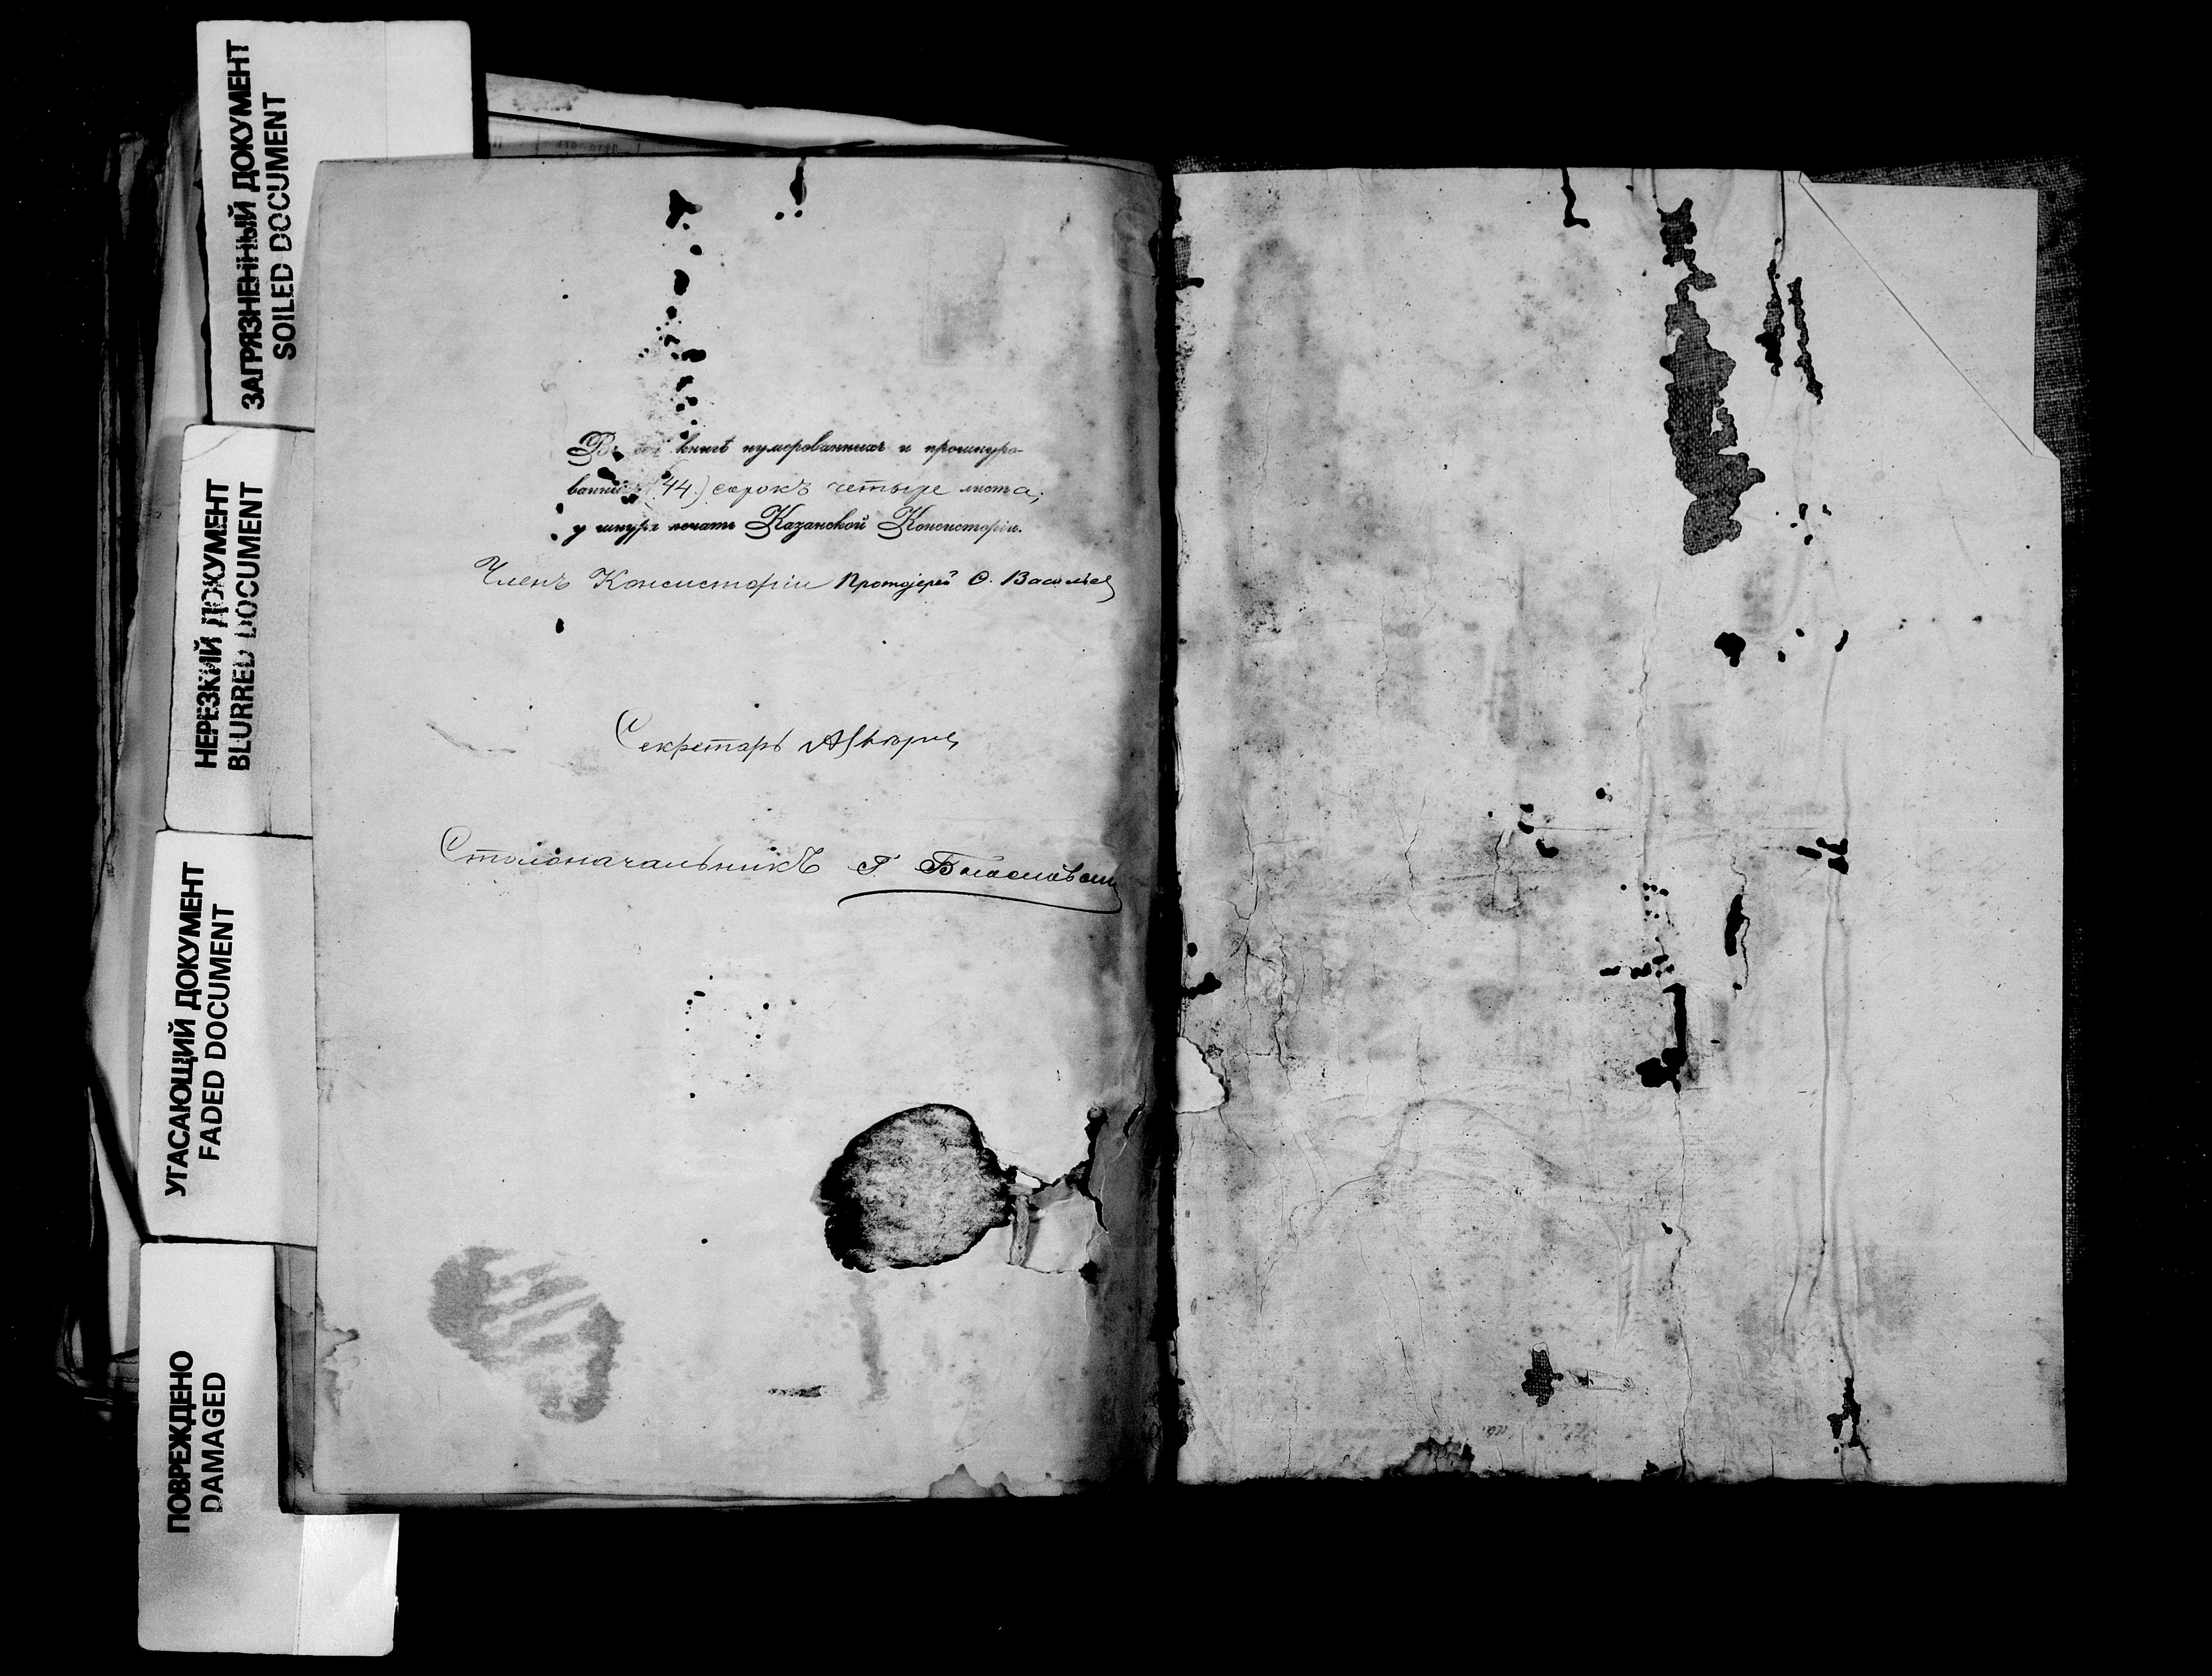 ЗАГРЯЗНЕННЫЙ ДОКУМЕНТ
SOILED DOCUMENT
НЕРЕЗКИЙ ДОКУМЕНТ
BLURRED DOCUMENT
УГАСАЮЩИЙ ДОКУМЕНТ
FADED DOCUMENT
ПОВРЕЖДЕНО
DAMAGED
книгѣ нумерованныхъ и прошнуро-
(44) сорокъ четыре листа;
у шнура печать Казанской Консисторіи.
Членъ Консисторіи Протоіерей С. Васильев
Секретарь
Столоначальникъ